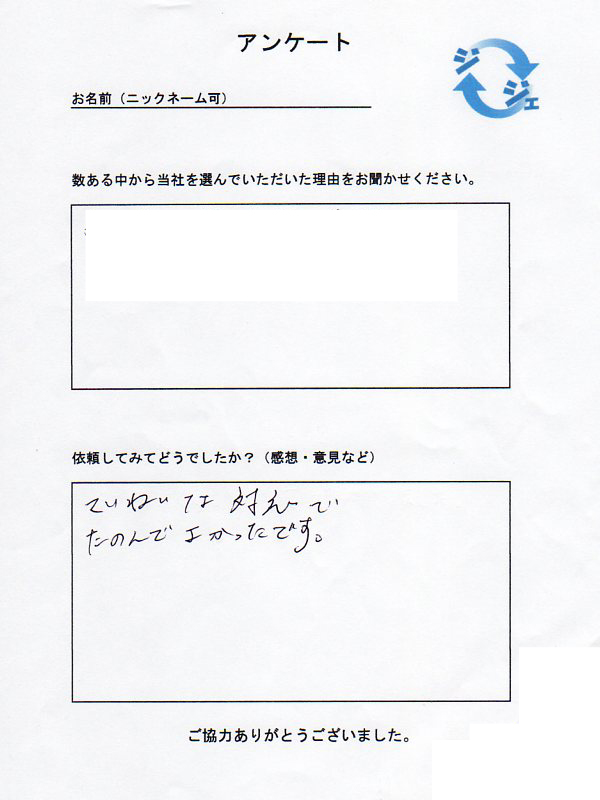 アンケート
ジジェ
お名前（ニックネーム可）
数ある中から当社を選んでいただいた理由をお聞かせください。
依頼してみてどうでしたか？（感想・意見など）
ていねいな対応で
たのんでよかったです。
ご協力ありがとうございました。